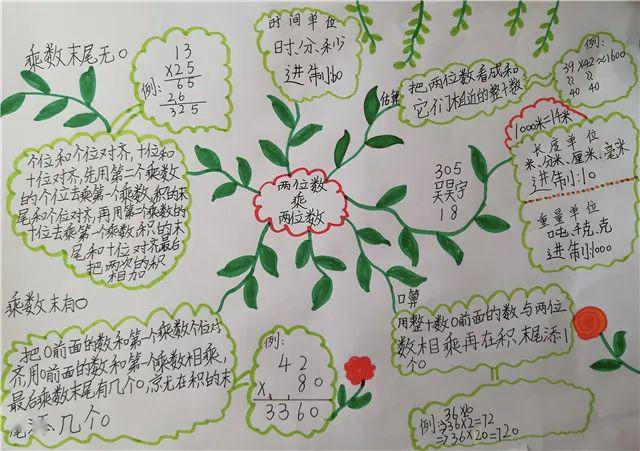 乘数末尾无0
13
×25
例:
65
26
325
个位和个位对齐,十位和
十位对齐,先用第二个乘数
的个位去乘第一个乘数,积的末
尾和个位对齐,再用第二个乘数的
十位去乘第一个乘数,积的末
尾和十位对齐最后
把两次的积
相加
时间单位
时、分、秒
进制60
估算
把两位数看成和
它们相近的整十数
例:
39×42≈1600
40 40
1000米=1千米
长度单位
米、分米、厘米、毫米
进制:10
重量单位
吨、千克、克
进制:1000
305
吴昊宇
18
两位数
乘
两位数
乘数末有0
把0前面的数和第一个乘数个位对
齐,用0前面的数和第一个乘数相乘,
最后乘数末尾有几个0,就在积的末
尾添几个0
例:
42
×80
3360
口算
用整十数0前面的数与两位
数相乘再在积末尾添1
个0
36×20
例:⇒36×2=72
⇒36×20=720